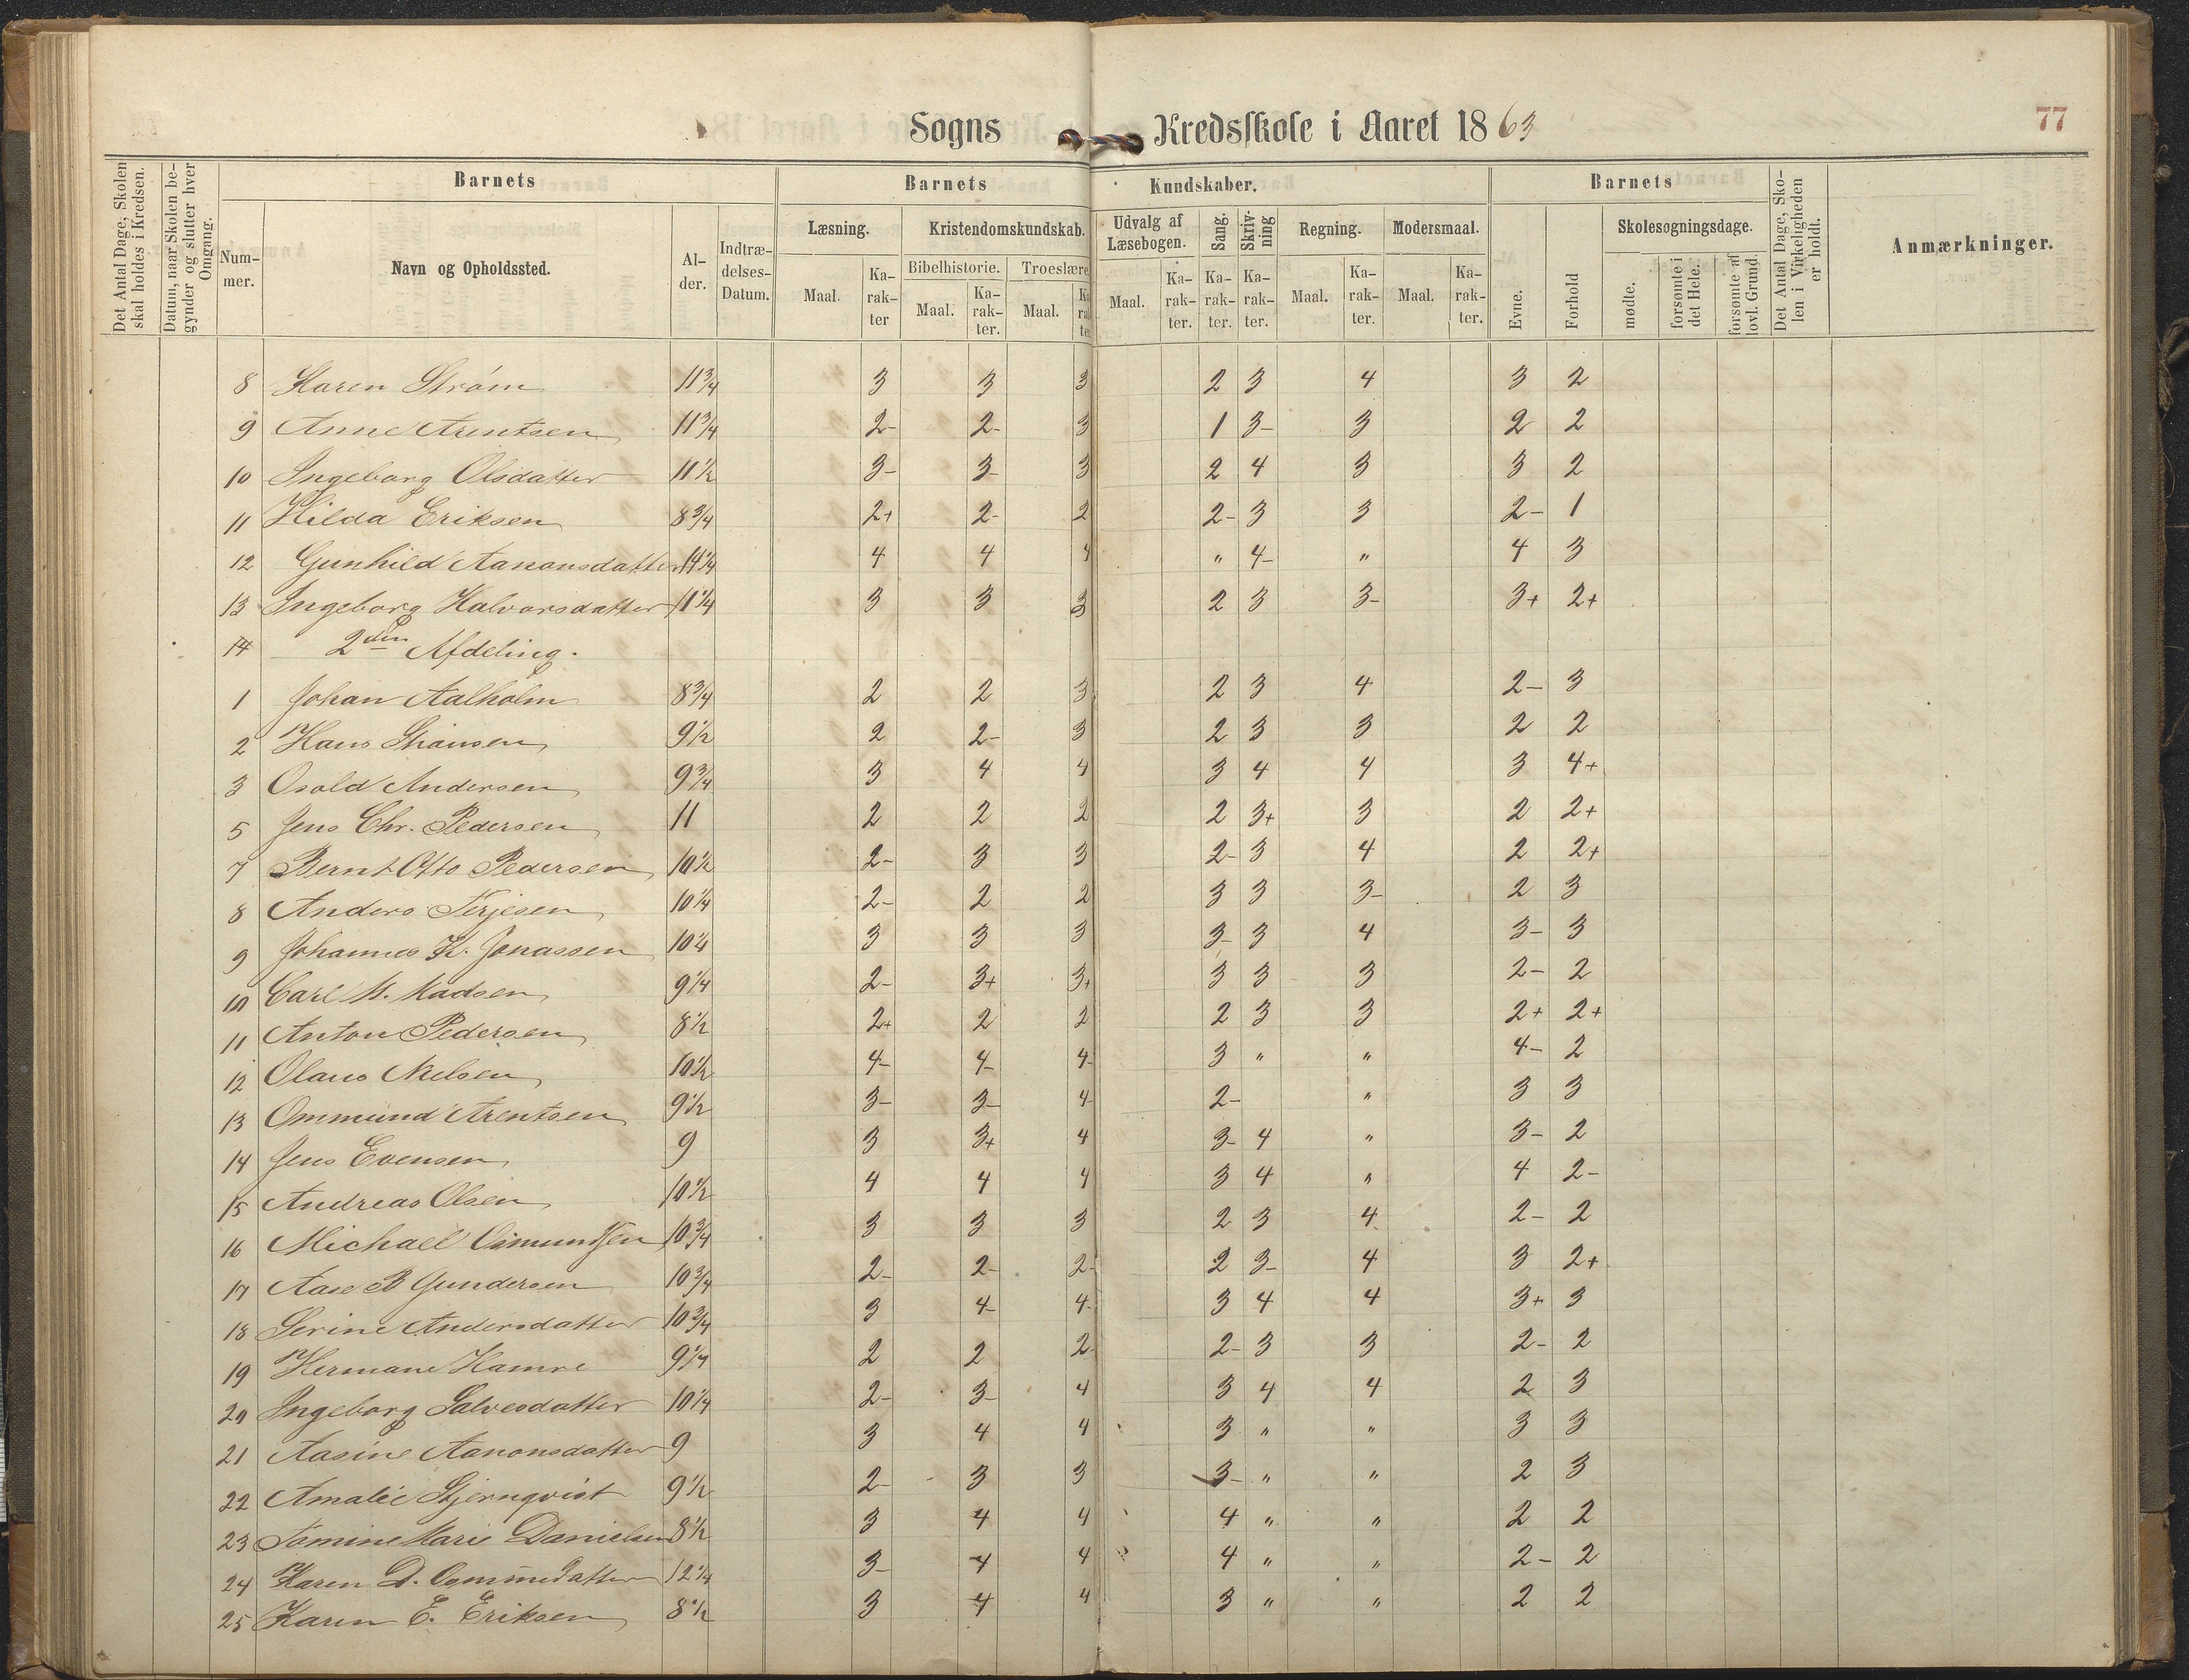 Sogns Kredsskole i Aaret 1863
77
Det Antal Dage, Skolen skal holdes i Kredsen.
Datum, naar Skolen begynder og slutter hver Omgang.
Barnets
Nummer.
Navn og Opholdssted.
Alder.
Indtrædelses-Datum.
Barnets Kundskaber.
Læsning.
Maal.
Karakter
Kristendomskundskab.
Bibelhistorie.
Maal.
Karakter.
Troeslære
Maal.
Udvalg af Læsebogen.
Maal.
Karakter.
Sang.
Karakter.
Skrivning
Karakter.
Regning.
Maal.
Karakter.
Modersmaal.
Maal.
Karakter.
Barnets
Evne.
Forhold
Skolesøgningsdage.
mødte.
forsømte i det Hele.
forsømte af lovl. Grund.
Det Antal Dage, Skolen i Virkeligheden er holdt.
Anmærkninger.
8 Karen Strøm 11 3/4 3 3 3 2 3 4 3 2
9 Anne Arentsen 11 3/4 2- 2- 3 1 3- 3 2 2
10 Ingeborg Olsdatter 11 1/2 3- 3- 3 2 4 3 3 2
11 Hilda Eriksen 8 3/4 2+ 2- 2 2- 3 3 2- 1
12 Gunhild Aanonsdatter 14 1/4 4 4 4 " 4- " 4 3
13 Ingeborg Halvorsdatter 11 1/4 3 3 3 2 3 3- 3+ 2+
14 2den Afdeling.
1 Johan Aalholm 8 3/4 2 2 3 2 3 4 2- 3
2 Hans 9 1/2 2 2- 3 2 3 3 2 2
3 Osold Andersen 9 3/4 3 4 4 3 4 4 3 4+
5 Jens Chr. Pedersen 11 2 2 2 2 3+ 3 2 2+
7 Bernt Otto Pedersen 10 1/2 2- 3 3 2- 3 4 2 2+
8 Anders Terjesen 10 1/4 2- 2 2 3 3 3- 2 3
9 Johannes K. Jonassen 10 1/4 3 3 3 3- 3 4 3- 3
10 Carl M. Madsen 9 1/4 2- 3+ 3+ 3 3 3 2- 2
11 Anton Pedersen 8 1/2 2+ 2 2 2 3 3 2+ 2+
12 Olaus Nielsen 10 1/2 4- 4- 4- 3 " " 4- 2
13 Ommund Arentsen 9 1/2 3- 3- 4- 2- " 3 3
14 Jens Evensen 9 3 3+ 4 3- 4 " 3- 2
15 Andreas Olsen 10 1/2 4 4 4 3 4 " 4 2-
16 Michael Osmundsen 10 3/4 3 3 3 2 3 4 2- 2
17 Aase B Gundersen 10 3/4 2- 2- 2- 2 3- 4 3 2+
18 Serine Andersdatter 10 3/4 3 4- 4- 3 4 4 3+ 3
19 Hermane Hamre 9 1/4 2 2 2- 2- 3 3 2- 2
20 Ingeborg Salvesdatter 10 1/4 2- 3- 4 3 4 4 2 3
21 Aasine Aanonsdatter 9 3 4 4 3 " " 3 3
22 Amalie Stjernqvist 9 1/2 2- 3 3 3- " " 2 3
23 Marie Danielsen 8 1/2 3 4 4 4 " " 2 2
24 Karen D. 12 1/4 3- 4 4 4 " " 2- 2
25 Karen E. Eriksen 8 1/2 3 4 4 3 " " 2 2